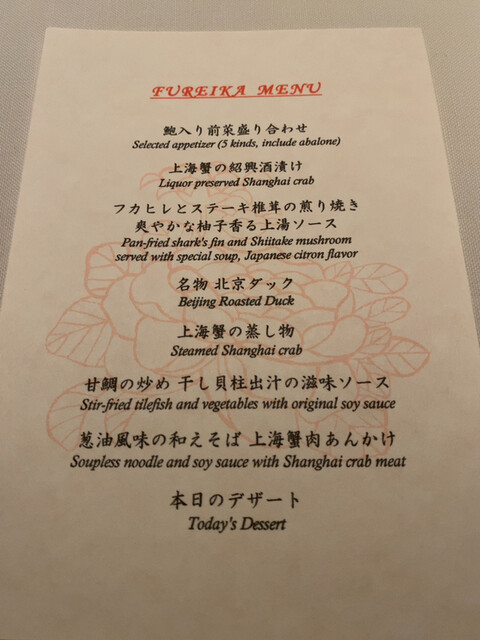 FUREIKA MENU
鮑入り前菜盛り合わせ
Selected appetizer (5 kinds, include abalone)
上海蟹の紹興酒漬け
Liquor preserved Shanghai crab
フカヒレとステーキ椎茸の煎り焼き
爽やかな柚子香る上湯ソース
Pan-fried shark's fin and Shiitake mushroom
served with special soup, Japanese citron flavor
名物 北京ダック
Beijing Roasted Duck
上海蟹の蒸し物
Steamed Shanghai crab
甘鯛の炒め 干し貝柱出汁の滋味ソース
Stir-fried tilefish and vegetables with original soy sauce
葱油風味の和えそば 上海蟹肉あんかけ
Soupless noodle and soy sauce with Shanghai crab meat
本日のデザート
Today's Dessert